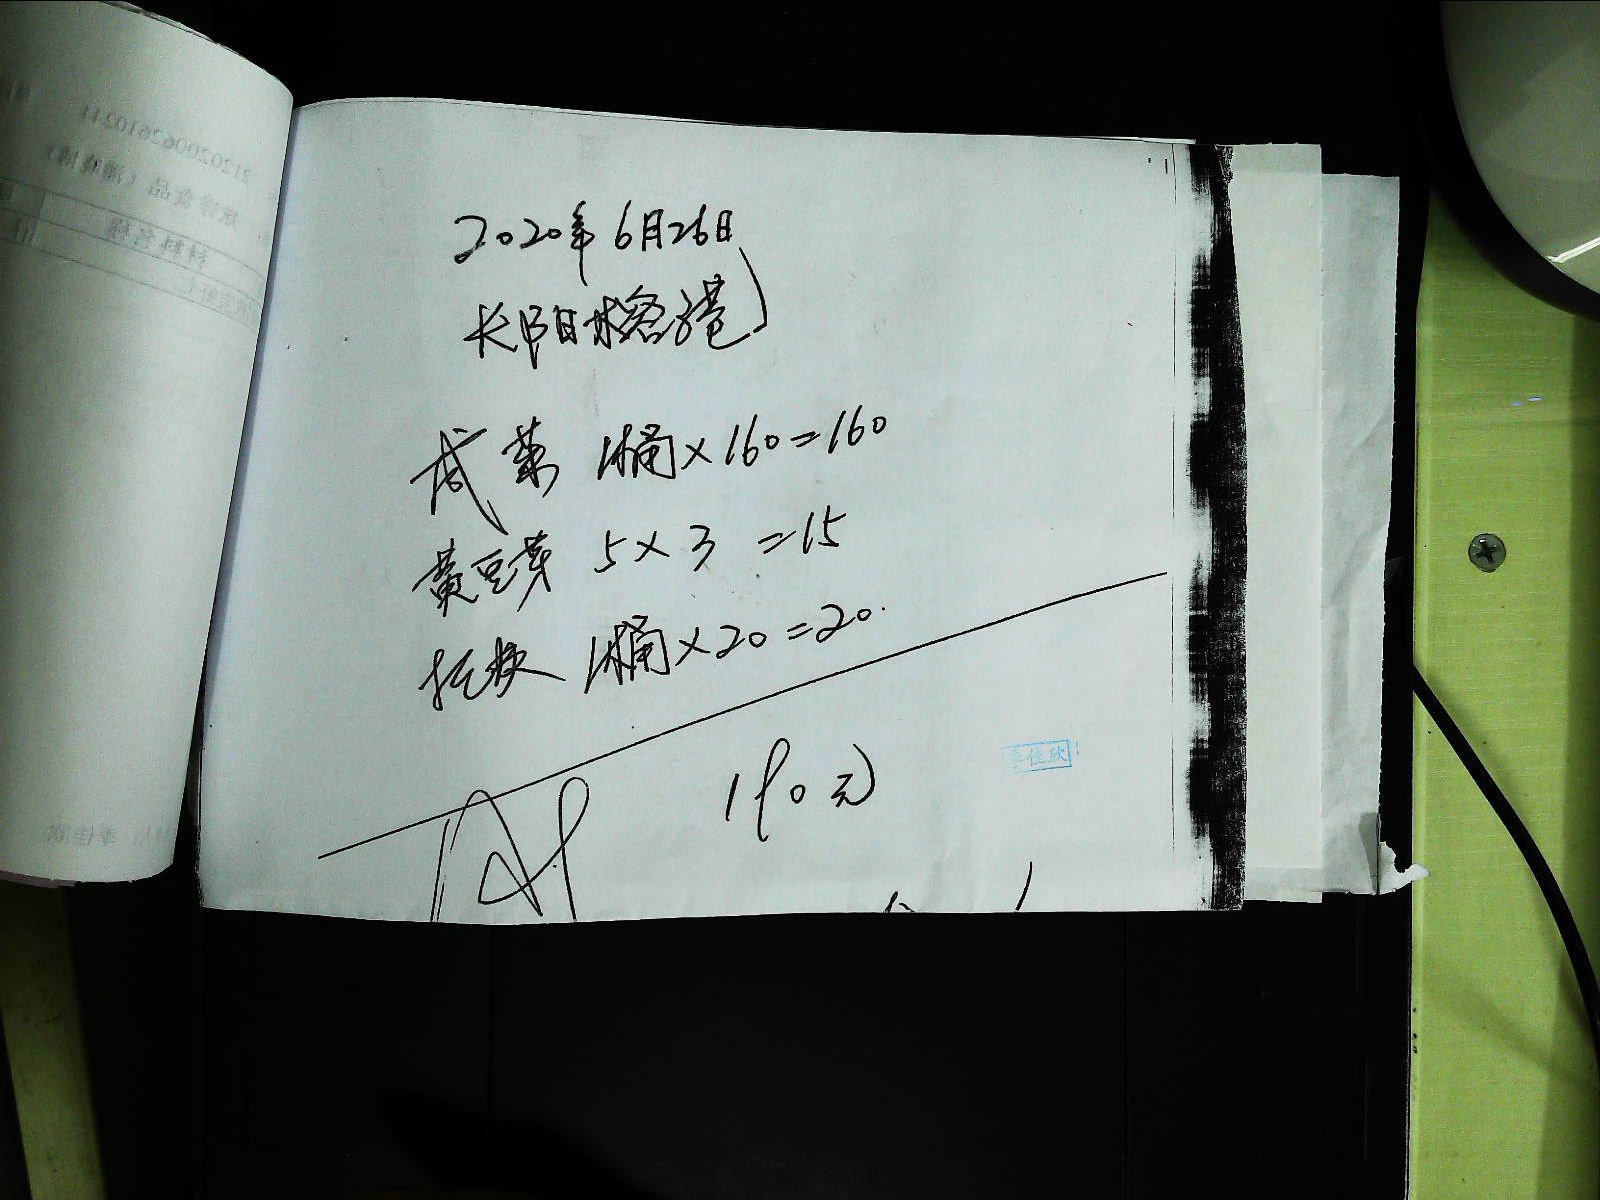 2020年6月26日
长阳木格子巷
咸菜 1桶×160=160
黄豆芽 5×3 =15
1桶×20=20
190元
李佳欣